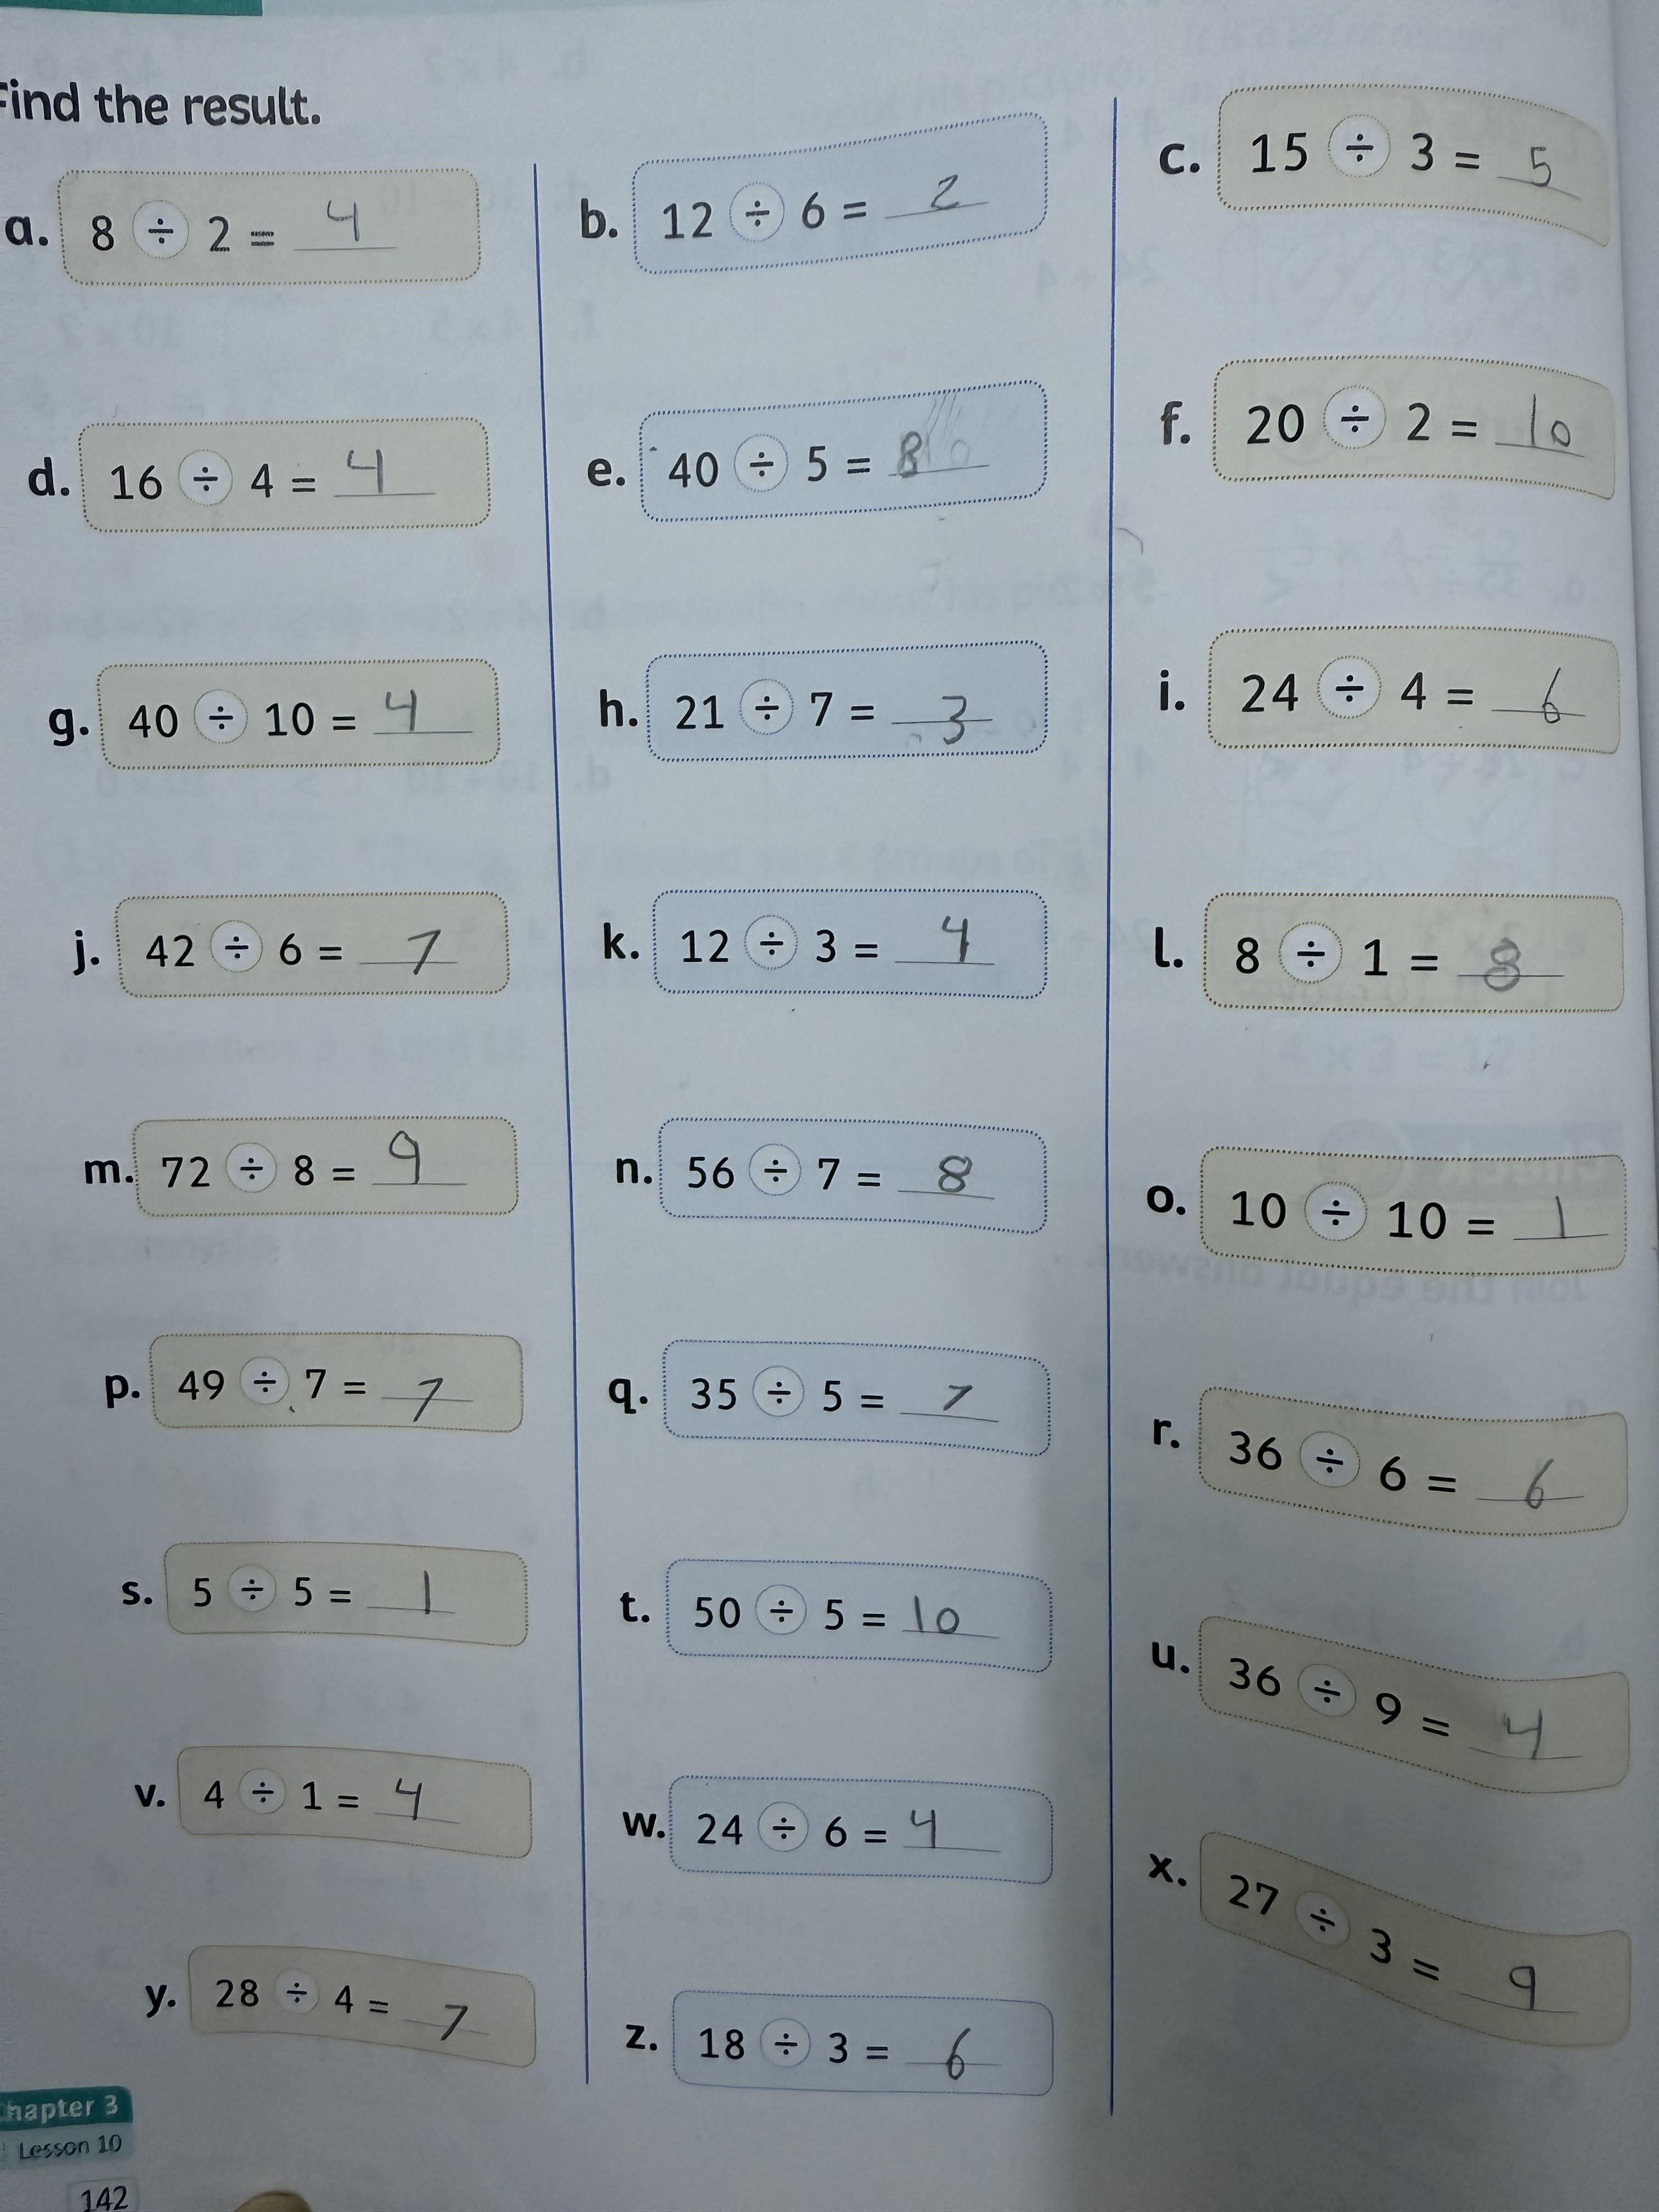 Find the result.
a. 8 ÷ 2 = 4
b. 12 ÷ 6 = 2
c. 15 ÷ 3 = 5
d. 16 ÷ 4 = 4
e. 40 ÷ 5 = 8
f. 20 ÷ 2 = 10
g. 40 ÷ 10 = 4
h. 21 ÷ 7 = 3
i. 24 ÷ 4 = 6
j. 42 ÷ 6 = 7
k. 12 ÷ 3 = 4
l. 8 ÷ 1 = 8
m. 72 ÷ 8 = 9
n. 56 ÷ 7 = 8
o. 10 ÷ 10 = 1
p. 49 ÷ 7 = 7
q. 35 ÷ 5 = 7
r. 36 ÷ 6 = 6
s. 5 ÷ 5 = 1
t. 50 ÷ 5 = 10
u. 36 ÷ 9 = 4
v. 4 ÷ 1 = 4
w. 24 ÷ 6 = 4
x. 27 ÷ 3 = 9
y. 28 ÷ 4 = 7
z. 18 ÷ 3 = 6
hapter 3
Lesson 10
142